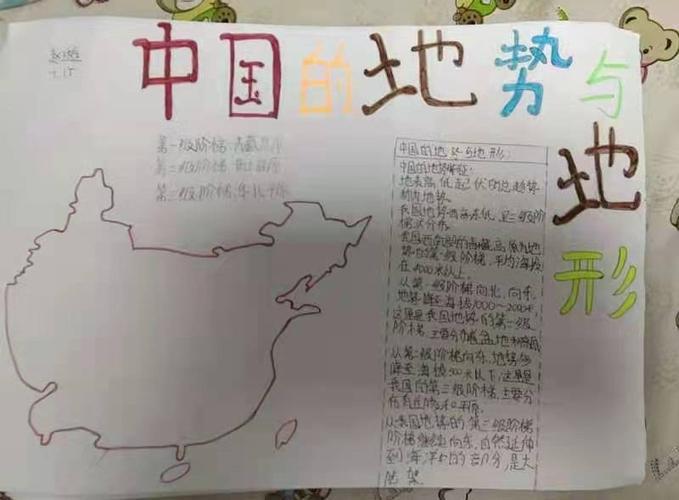 中国的地势与地形
第一级阶梯:青藏高原
第二级阶梯
第三级阶梯:华北平原
中国的地势与地形:
中国的地势特征:
地表高低起伏的总趋势
称为地势。
我国地势西高东低,呈三级阶
梯状分布。
我国西南部的青藏高原为地
势的第一级阶梯,平均海拔
在4000米以上。
从第一级阶梯向北、向东,
地势降至海拔1000~2000米,
这里是我国地势的第二级
阶梯,主要分布着盆地和高原。
从第二级阶梯向东,地势多
降至海拔500米以下,这里是
我国的第三级阶梯,主要分
布有丘陵和平原。
从我国地势的第三级阶梯
阶梯继续向东,自然延伸
到海洋中的部分,是大
陆架。